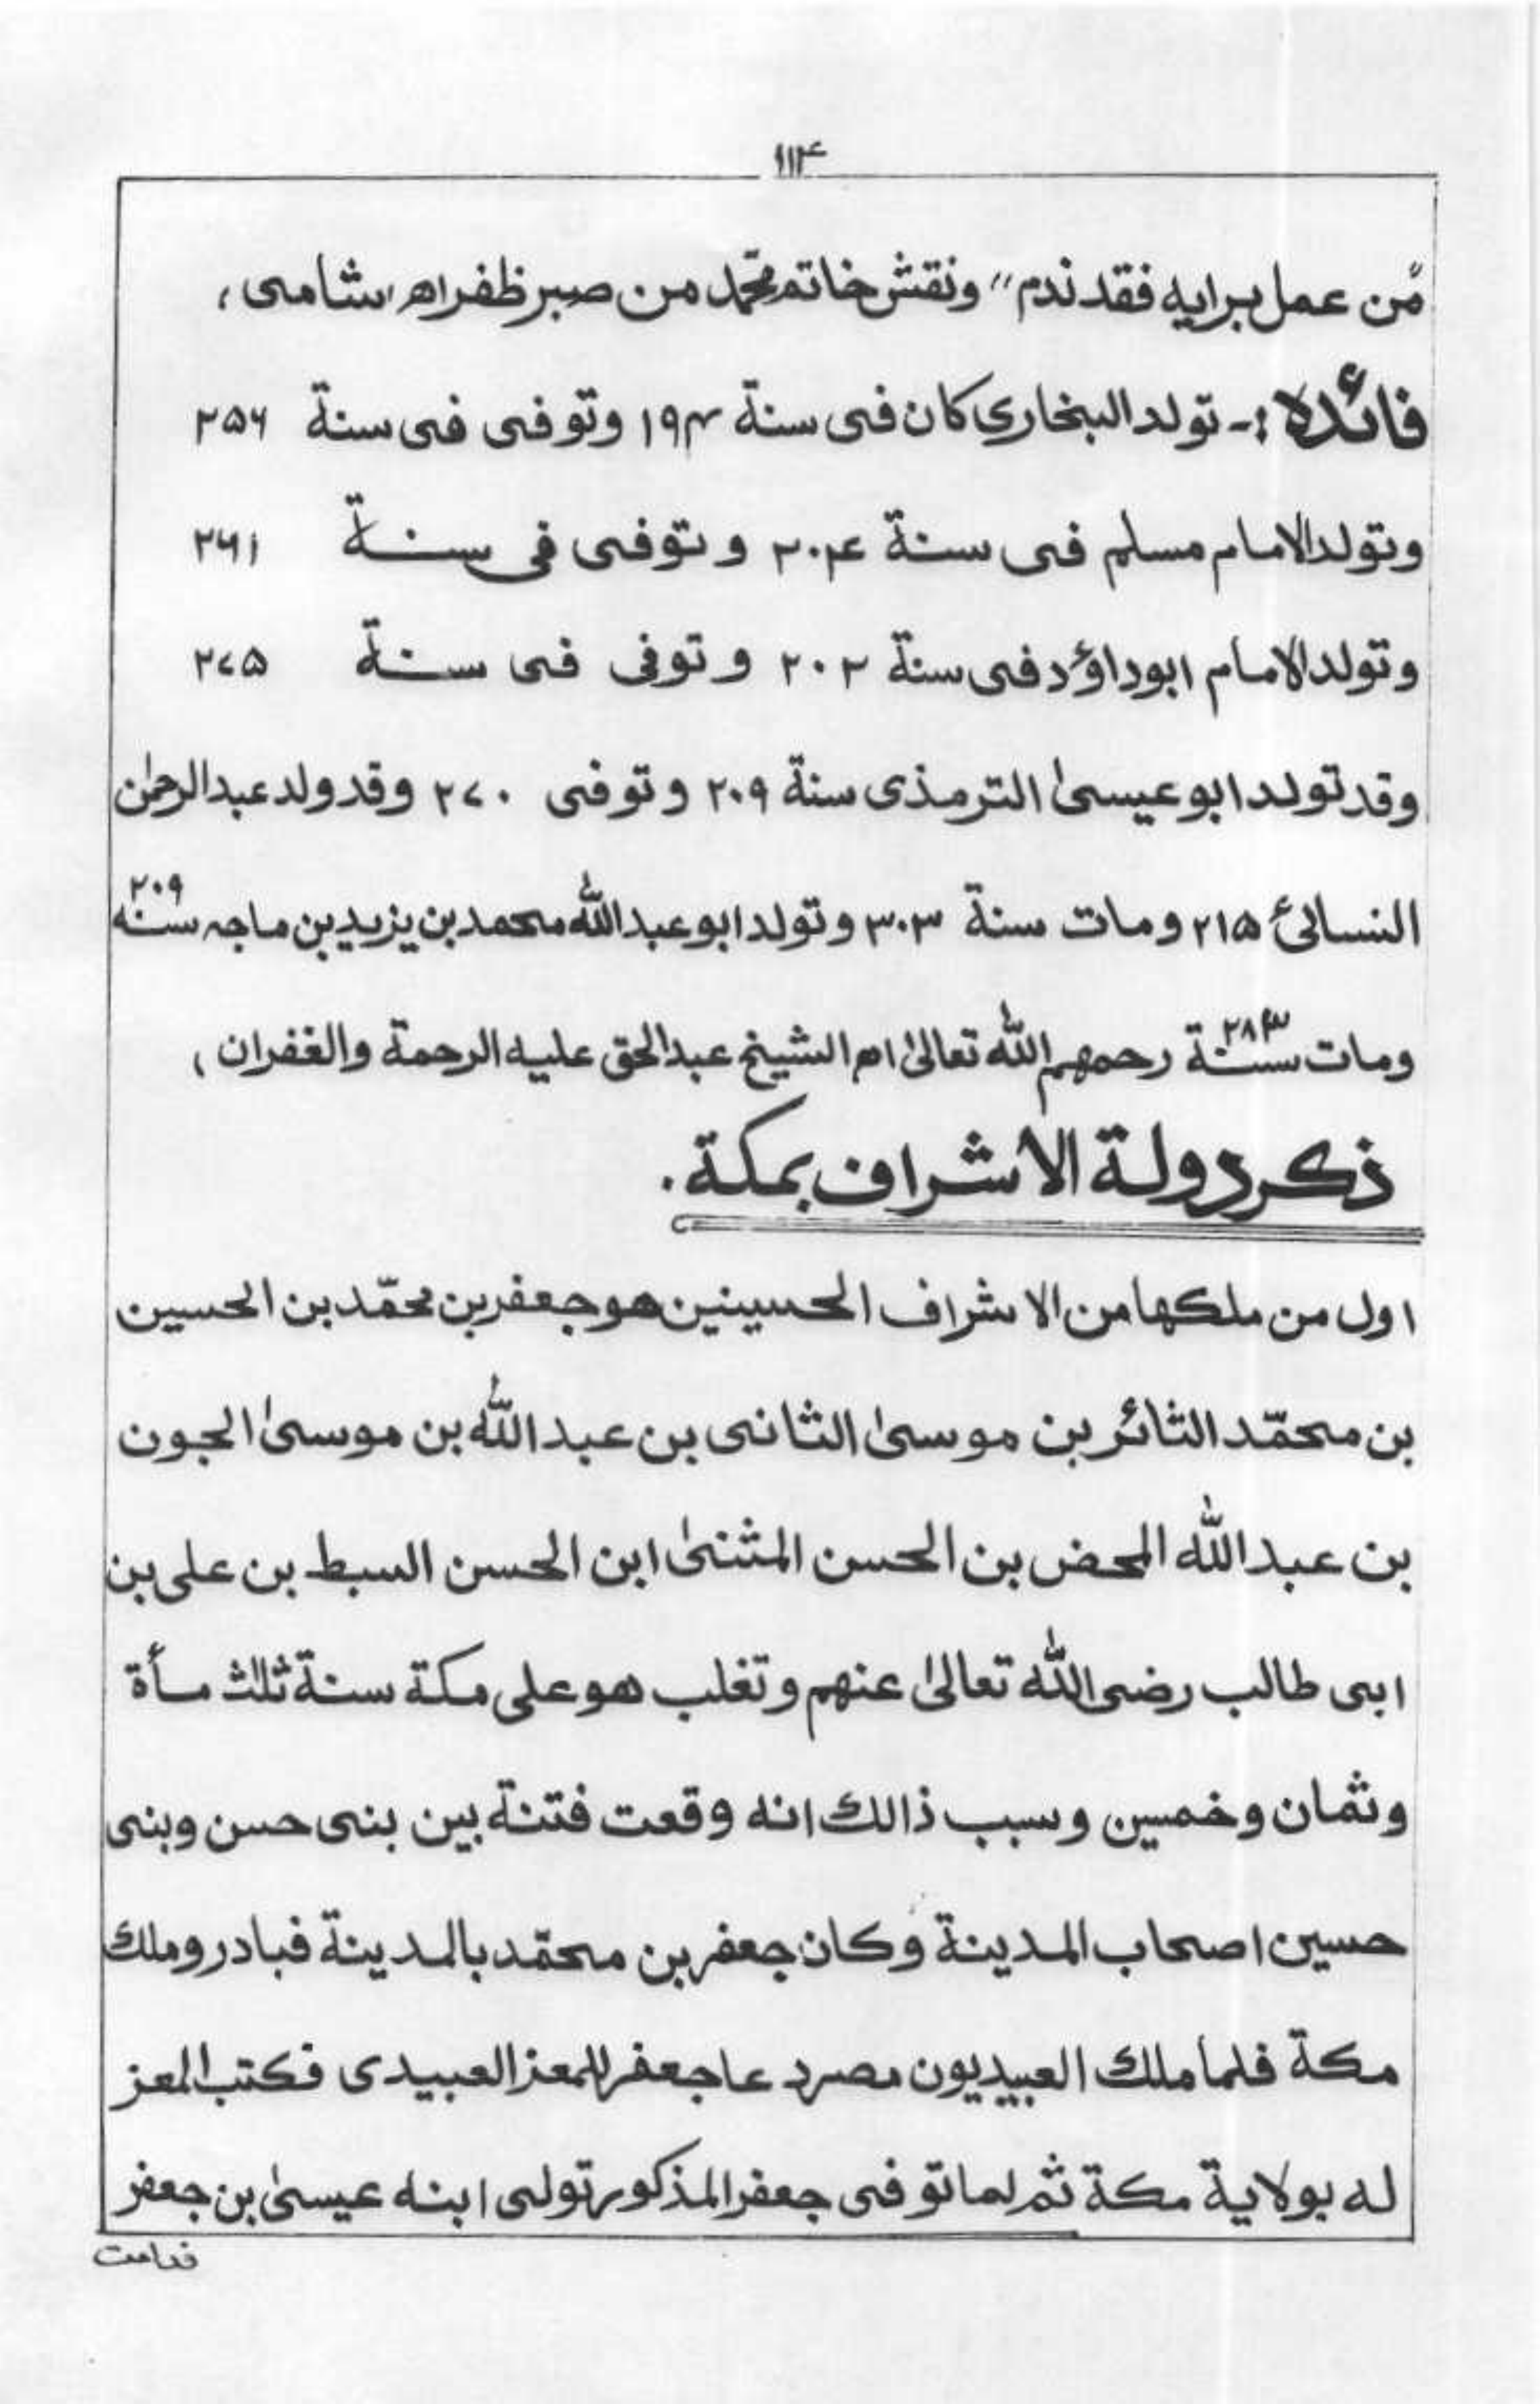 ۱۱۴
مَن عمل برايه فقد ندم" ونقش خاتم محمّد من صبر ظفر اھ، شامی،
فائدہ :- تولد البخاري كان فی سنة ۱۹۴ وتوفی فی سنة ۲۵۶
وتولد الامام مسلم فی سنة ۲۰۴ وتوفی فی سنة ۲۶۱
وتولد الامام ابوداؤد فی سنة ۲۰۲ وتوفی فی سنة ۲۷۵
وقد تولد ابو عيسىٰ الترمذی سنة ۲۰۹ وتوفی ۲۷۰ وقد ولد عبد الرحمٰن
النسائیؒ ۲۱۵ ومات سنة ۳۰۳ وتولد ابو عبد اللہ محمد بن يزيد بن ماجہ سنة ۲۰۹
ومات سنة ۲۸۳ رحمهم اللہ تعالىٰ اھ الشيخ عبد الحق عليه الرحمة والغفران،
ذكر دولة الاشراف بمكة.
اول من ملكها من الاشراف الحسينين هو جعفر بن محمّد بن الحسين
بن محمّد الثائر بن موسىٰ الثانی بن عبد اللہ بن موسىٰ الجون
بن عبد اللہ المحض بن الحسن المثنىٰ ابن الحسن السبط بن علی بن
ابی طالب رضی اللہ تعالىٰ عنهم وتغلب هو علی مكة سنة ثلٰث مأة
وثمان وخمسين وسبب ذالك انه وقعت فتنة بين بنی حسن وبنی
حسين اصحاب المدينة وكان جعفر بن محمّد بالمدينة فبادر وملك
مكة فلما ملك العبيديون مصر دعا جعفر للمعز العبيدی فكتب المعز
له بولاية مكة ثم لما توفی جعفر المذكور تولی ابنه عيسىٰ بن جعفر